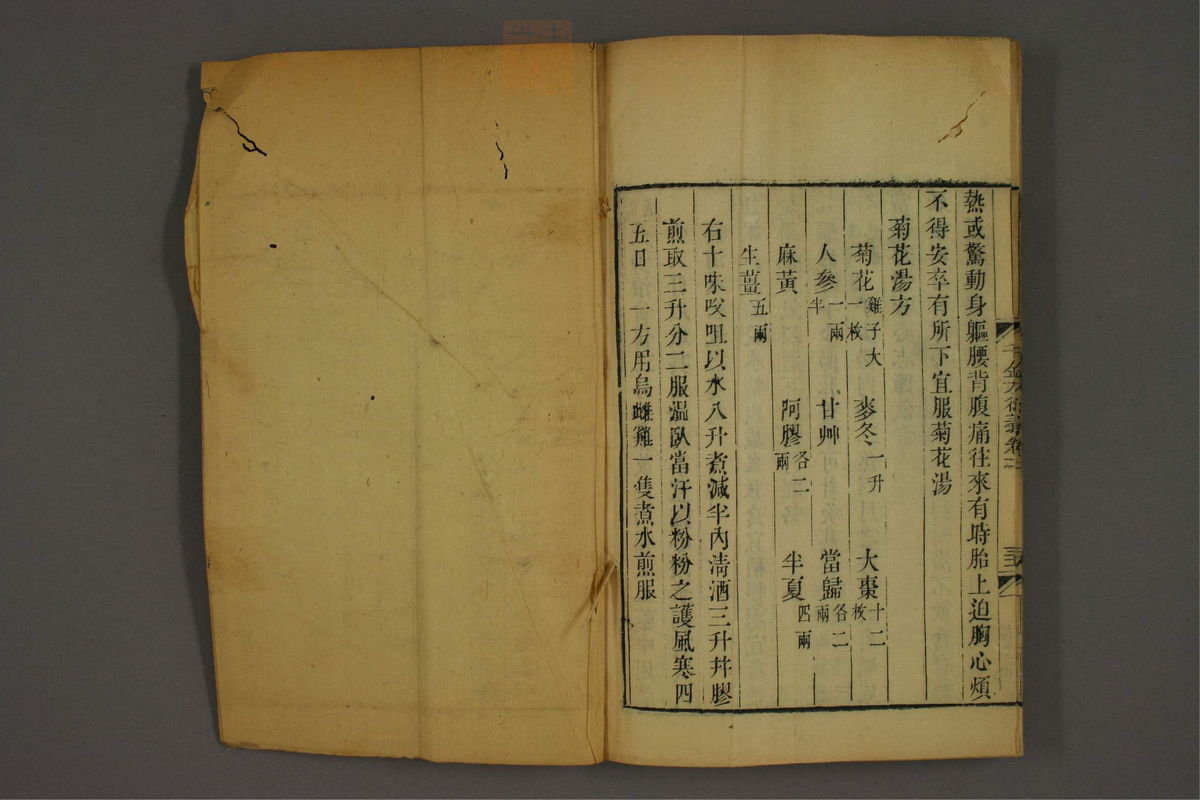 熱或驚動身軀腰背腹痛往來有時胎上迫胸心煩
不得安卒有所下宜服菊花湯
菊花湯方
菊花雞子大一枚 麥冬一升 大棗十二枚
人參一兩半 甘艸 當歸各二兩
麻黃 阿膠各二兩 半夏四兩
生薑五兩
右十味㕮咀以水八升煮減半內清酒三升并膠
煎取三升分二服溫臥當汗以粉粉之護風寒四
五日 一方用烏雌雞一隻煮水煎服
千金方衍義卷二